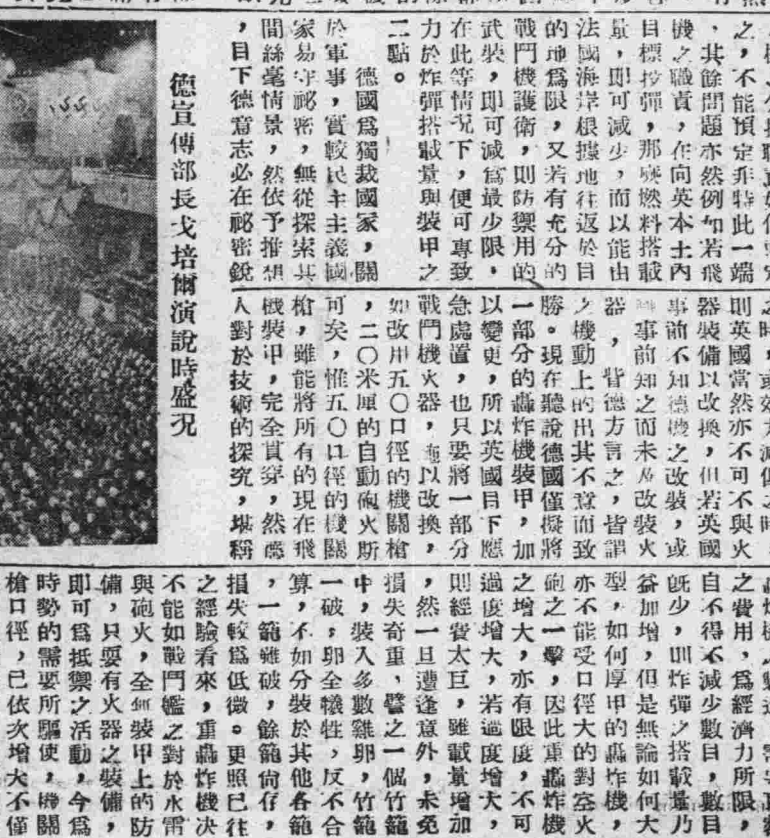 之，不能預定非特此一端
，其餘問題亦然例如若飛
機之職責，在向英本土內
目標投彈，那麼燃料搭載
量，即可減少，而以能由
法國海岸根據地往返於目
的地爲限，又若有充分的
戰鬥機護衛，則防禦用的
武裝，即可減爲最少限，
在此等情况下，便可專致
力於炸彈搭載量與裝甲之
二點。
德國爲獨裁國家，關
於軍事，實較民主主義國
家易守祕密，無從探索其
間絲毫情景，然依予推想
，目下德意志必在祕密銳
德宣傳部長戈培爾演說時盛况
則英國當然亦不可不與火
器裝備以改換，但若英國
事前不知德機之改裝，或
事前知之而未及改裝火
器，皆德方言之，皆謂
之機動上的出其不意而致
勝。現在聽說德國僅擬將
一部分的轟炸機裝甲，加
以變更，所以英國目下應
急處置，也只要將一部分
戰鬥機火器，施以改換，
如改用五〇口徑的機關槍
，二〇米厘的自動砲火斯
可矣，惟五〇口徑的機關
槍，雖能將所有的現在飛
機裝甲，完全貫穿，然德
人對於技術的探究，堪稱
之費用，爲經濟力所限，
自不得不減少數目，數目
旣少，則炸彈之搭載量乃
益加增，但是無論如何大
型，如何厚甲的轟炸機，
亦不能受口徑大的對空火
砲之一擊，因此重轟炸機
之增大，亦有限度，不可
過度增大，若過度增大，
則經費太巨，雖載量增加
，然一旦遭逢意外，未免
損失奇重，譬之一個竹籠
中，裝入多數雞卵，竹籠
一破，卵全犧牲，反不合
算，不如分裝於其他各籠
，一籠雖破，餘籠尙存，
損失較爲低微。更照已往
之經驗看來，重轟炸機决
不能如戰鬥艦之對於水雷
與砲火，全無裝甲上的防
備，只要有火器之裝備，
即可爲抵禦之活動，今爲
時勢的需要所驅使，機關
槍口徑，已依次增大不僅